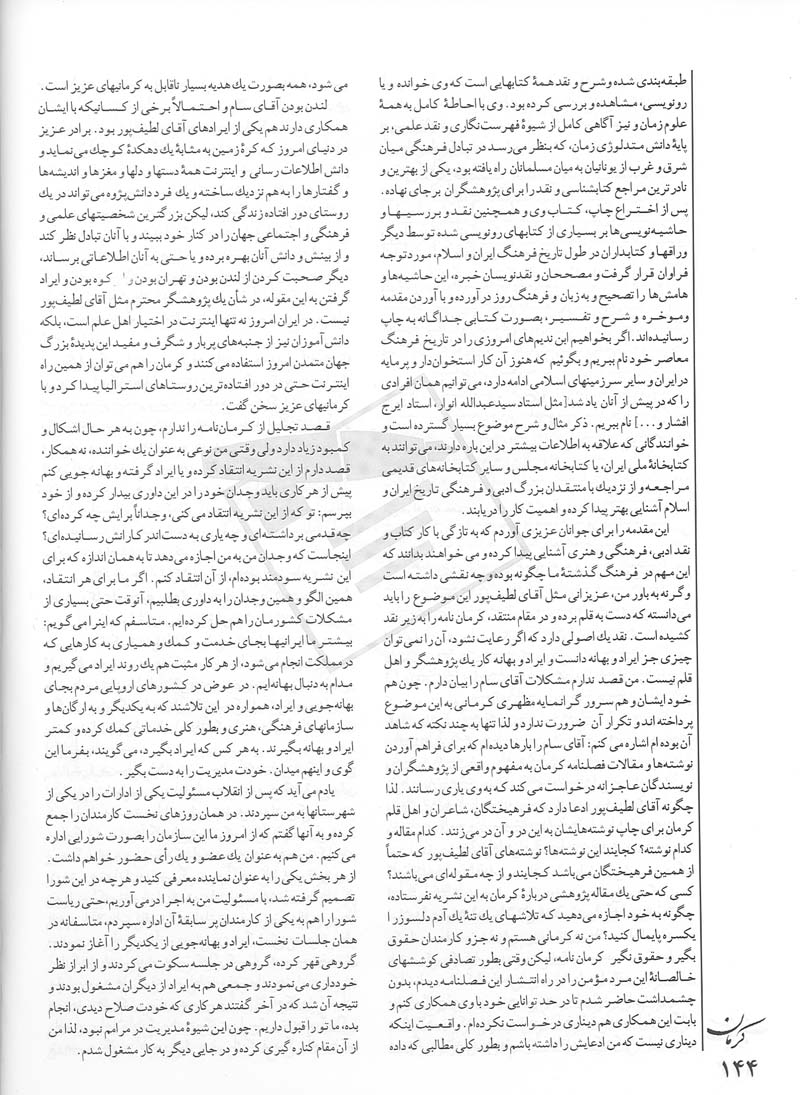 طبقه‌بندی شده وشرح و نقد همهٔ کتابهایی است که وی خوانده و یا
رونویسی، مشاهده و بررسی کرده بود. وی با احاطهٔ کامل به همهٔ
علوم زمان و نیز آگاهی کامل از شیوهٔ فهرست‌نگاری و نقد علمی، بر
پایهٔ دانش متدلوژی زمان، که بنظر می‌رسد در تبادل فرهنگی میان
شرق و غرب از یونانیان به میان مسلمانان راه یافته بود، یکی از بهترین و
نادرترین مراجع کتابشناسی و نقد را برای پژوهشگران برجای نهاده.
پس از اختراع چاپ، کتاب وی و همچنین نقد و بررسیها و
حاشیه‌نویسی‌ها بر بسیاری از کتابهای رونویسی شده توسط دیگر
وراقها و کتابداران در طول تاریخ فرهنگ ایران و اسلام، موردتوجه
فراوان قرار گرفت و مصححان و نقدنویسان خبره، این حاشیه‌ها و
هامش‌ها را تصحیح و به زبان و فرهنگ روز درآورده و با آوردن مقدمه
وموخره و شرح و تفسیر، بصورت کتابی جداگانه به چاپ
رسانیده‌اند. اگر بخواهیم ابن ندیم‌های امروزی را در تاریخ فرهنگ
معاصر خود نام ببریم و بگوئیم که هنوز آن کار استخوان‌دار و پرمایه
در ایران و سایر سرزمینهای اسلامی ادامه دارد، می‌توانیم همان افرادی
را که در پیش از آنان یاد شد[مثل استاد سیدعبدالله انوار، استاد ایرج
افشار و...] نام ببریم. ذکر مثال و شرح موضوع بسیار گسترده است و
خوانندگانی که علاقه به اطلاعات بیشتر در این باره دارند، می‌توانند به
کتابخانهٔ ملی ایران، یا کتابخانه مجلس و سایر کتابخانه‌های قدیمی
مراجعه و از نزدیك با منتقدان بزرگ ادبی و فرهنگی تاریخ ایران و
اسلام آشنایی بهتر پیدا کرده و اهمیت کار را دریابند.
این مقدمه را برای جوانان عزیزی آوردم که به تازگی با کار کتاب و
نقد ادبی، فرهنگی و هنری آشنایی پیدا کرده و می خواهند بدانند که
این مهم در فرهنگ گذشتهٔ ما چگونه بوده و چه نقشی داشته است
وگرنه به باور من، عزیزانی مثل آقای لطیف‌پور این موضوع را باید
می‌دانسته که دست به قلم برده و در مقام منتقد، کرمان نامه را به زیر نقد
کشیده است. نقد یك اصولی دارد که اگر رعایت نشود، آن را نمی‌توان
چیزی جز ایراد و بهانه دانست و ایراد و بهانه کار یك پژوهشگر و اهل
قلم نیست. من قصد ندارم مشکلات آقای سام را بیان دارم. چون هم
خود ایشان و هم سرور گرانمایه مظهری کرمانی به این موضوع
پرداخته اند و تکرار آن ضرورت ندارد و لذا تنها به چند نکته که شاهد
آن بوده ام اشاره می کنم: آقای سام را بارها دیده‌ام که برای فراهم آوردن
نوشته‌ها و مقالات فصلنامه کرمان به مفهوم واقعی از پژوهشگران و
نویسندگان عاجزانه درخواست می‌کند که به وی یاری رسانند. لذا
چگونه آقای لطیف‌پور ادعا دارد که فرهیختگان، شاعران و اهل قلم
کرمان برای چاپ نوشته‌هایشان به این در و آن در می‌زنند. کدام مقاله و
کدام نوشته؟ کجایند این نوشته‌ها؟ نوشته‌های آقای لطیف‌پور که حتماً
از همین فرهیختگان می‌باشد کجایند و از چه مقوله‌ای می‌باشند؟
کسی که حتی یك مقاله پژوهشی دربارهٔ کرمان به این نشریه نفرستاده،
چگونه به خود اجازه می‌دهید که تلاشهای یك تنهٔ یك آدم دلسوز را
یکسره پایمال کنید؟ من نه کرمانی هستم و نه جزو کارمندان حقوق
بگیر و حقوق نگیر کرمان نامه، لیکن وقتی بطور تصادفی کوششهای
خالصانهٔ این مرد مؤمن را در راه انتشار این فصلنامه دیدم، بدون
چشمداشت حاضر شدم تا در حد توانایی خود با وی همکاری کنم و
بابت این همکاری هم دیناری درخواست نکرده‌ام. واقعیت اینکه
دیناری نیست که من ادعایش را داشته باشم و بطور کلی مطالبی که داده
می شود، همه بصورت یك هدیه بسیار ناقابل به کرمانیهای عزیز است.
لندن بودن آقای سام و احتمالاً برخی از کسانیکه با ایشان
همکاری دارند هم یکی از ایرادهای آقای لطیف‌پور بود. برادر عزیز
در دنیای امروز که کرهٔ زمین به مثابهٔ یك دهکدهٔ کوچك می‌نماید و
دانش اطلاعات رسانی و اینترنت همهٔ دستها و دلها و مغزها و اندیشه‌ها
و گفتارها را به هم نزدیك ساخته و یك فرد دانش‌پژوه می‌تواند در یك
روستای دور افتاده زندگی کند، لیکن بزرگترین شخصیتهای علمی و
فرهنگی و اجتماعی جهان را در کنار خود ببیند و با آنان تبادل نظر کند
و از بینش و دانش آنان بهره برده و یا حتی به آنان اطلاعاتی برساند،
دیگر صحبت کردن از لندن بودن و تهران بودن و کوه بودن و ایراد
گرفتن به این مقوله، در شأن یك پژوهشگر محترم مثل آقای لطیف‌پور
نیست. در ایران امروز نه تنها اینترنت در اختیار اهل علم است، بلکه
دانش‌آموزان نیز از جنبه‌های پربار و شگرف و مفید این پدیدهٔ بزرگ
جهان متمدن امروز استفاده می‌کنند و کرمان را هم می توان از همین راه
اینترنت حتی در دور افتاده‌ترین روستاهای استرالیا پیدا کرد و با
کرمانیهای عزیز سخن گفت.
قصد تجلیل از کرمان‌نامه را ندارم، چون به هر حال اشکال و
کمبود زیاد دارد ولی وقتی من نوعی به عنوان یك خواننده، نه همکار،
قصد دارم از این نشریه انتقاد کرده و یا ایراد گرفته و بهانه جویی کنم
پیش از هر کاری باید وجدان خود را در این داوری بیدار کرده و از خود
بپرسم: تو که از این نشریه انتقاد می کنی، وجداناً برایش چه کرده‌ای؟
چه قدمی برداشته‌ای و چه یاری به دست‌اندرکارانش رسانیده‌ای؟
اینجاست که وجدان من به من اجازه می‌دهد تا به همان اندازه که برای
این نشریه سودمند بوده‌ام، از آن انتقاد کنم. اگر ما برای هر انتقاد،
همین الگو و همین وجدان را به داوری بطلبیم، آنوقت حتی بسیاری از
مشکلات کشورمان را هم حل کرده‌ایم. متأسفم که اینرا می‌گویم:
بیشتر ما ایرانیها بجای خدمت و کمك و همیاری به کارهایی که
در مملکت انجام می‌شود، از هر کار مثبت هم یك روند ایراد می‌گیریم و
مدام به دنبال بهانه‌ایم. در عوض در کشورهای اروپایی مردم بجای
بهانه‌جویی و ایراد، همواره در این تلاشند که به یکدیگر و به ارگان‌ها و
سازمانهای فرهنگی، هنری و بطور کلی خدماتی کمك کرده و کمتر
ایراد و بهانه بگیرند. به هر کس که ایراد بگیرد، می‌گویند، بفرما این
گوی و اینهم میدان. خودت مدیریت را به دست بگیر.
یادم می‌آید که پس از انقلاب مسئولیت یکی از ادارات را در یکی از
شهرستانها به من سپردند. در همان روزهای نخست کارمندان را جمع
کرده و به آنها گفتم که از امروز ما این سازمان را بصورت شورایی اداره
می‌کنیم. من هم به عنوان یك عضو و یك رأی حضور خواهم داشت.
از هر بخش یکی را به عنوان نماینده معرفی کنید و هر چه در این شورا
تصمیم گرفته شد، با مسئولیت من به اجرا در می‌آوریم، حتی ریاست
شورا را هم به یکی از کارمندان پر سابقهٔ آن اداره سپردم، متاسفانه در
همان جلسات نخست، ایراد و بهانه‌جویی از یکدیگر را آغاز نمودند.
گروهی قهر کرده، گروهی در جلسه سکوت می کردند و از ابراز نظر
خودداری می‌نمودند و جمعی هم به ایراد از دیگران مشغول بودند و
نتیجه آن شد که در آخر گفتند هر کاری که خودت صلاح دیدی، انجام
بده، ما تو را قبول داریم. چون این شیوهٔ مدیریت در مرامم نبود، لذا من
از آن مقام کناره گیری کرده و در جایی دیگر به کار مشغول شدم.
کرمان
۱۴۴